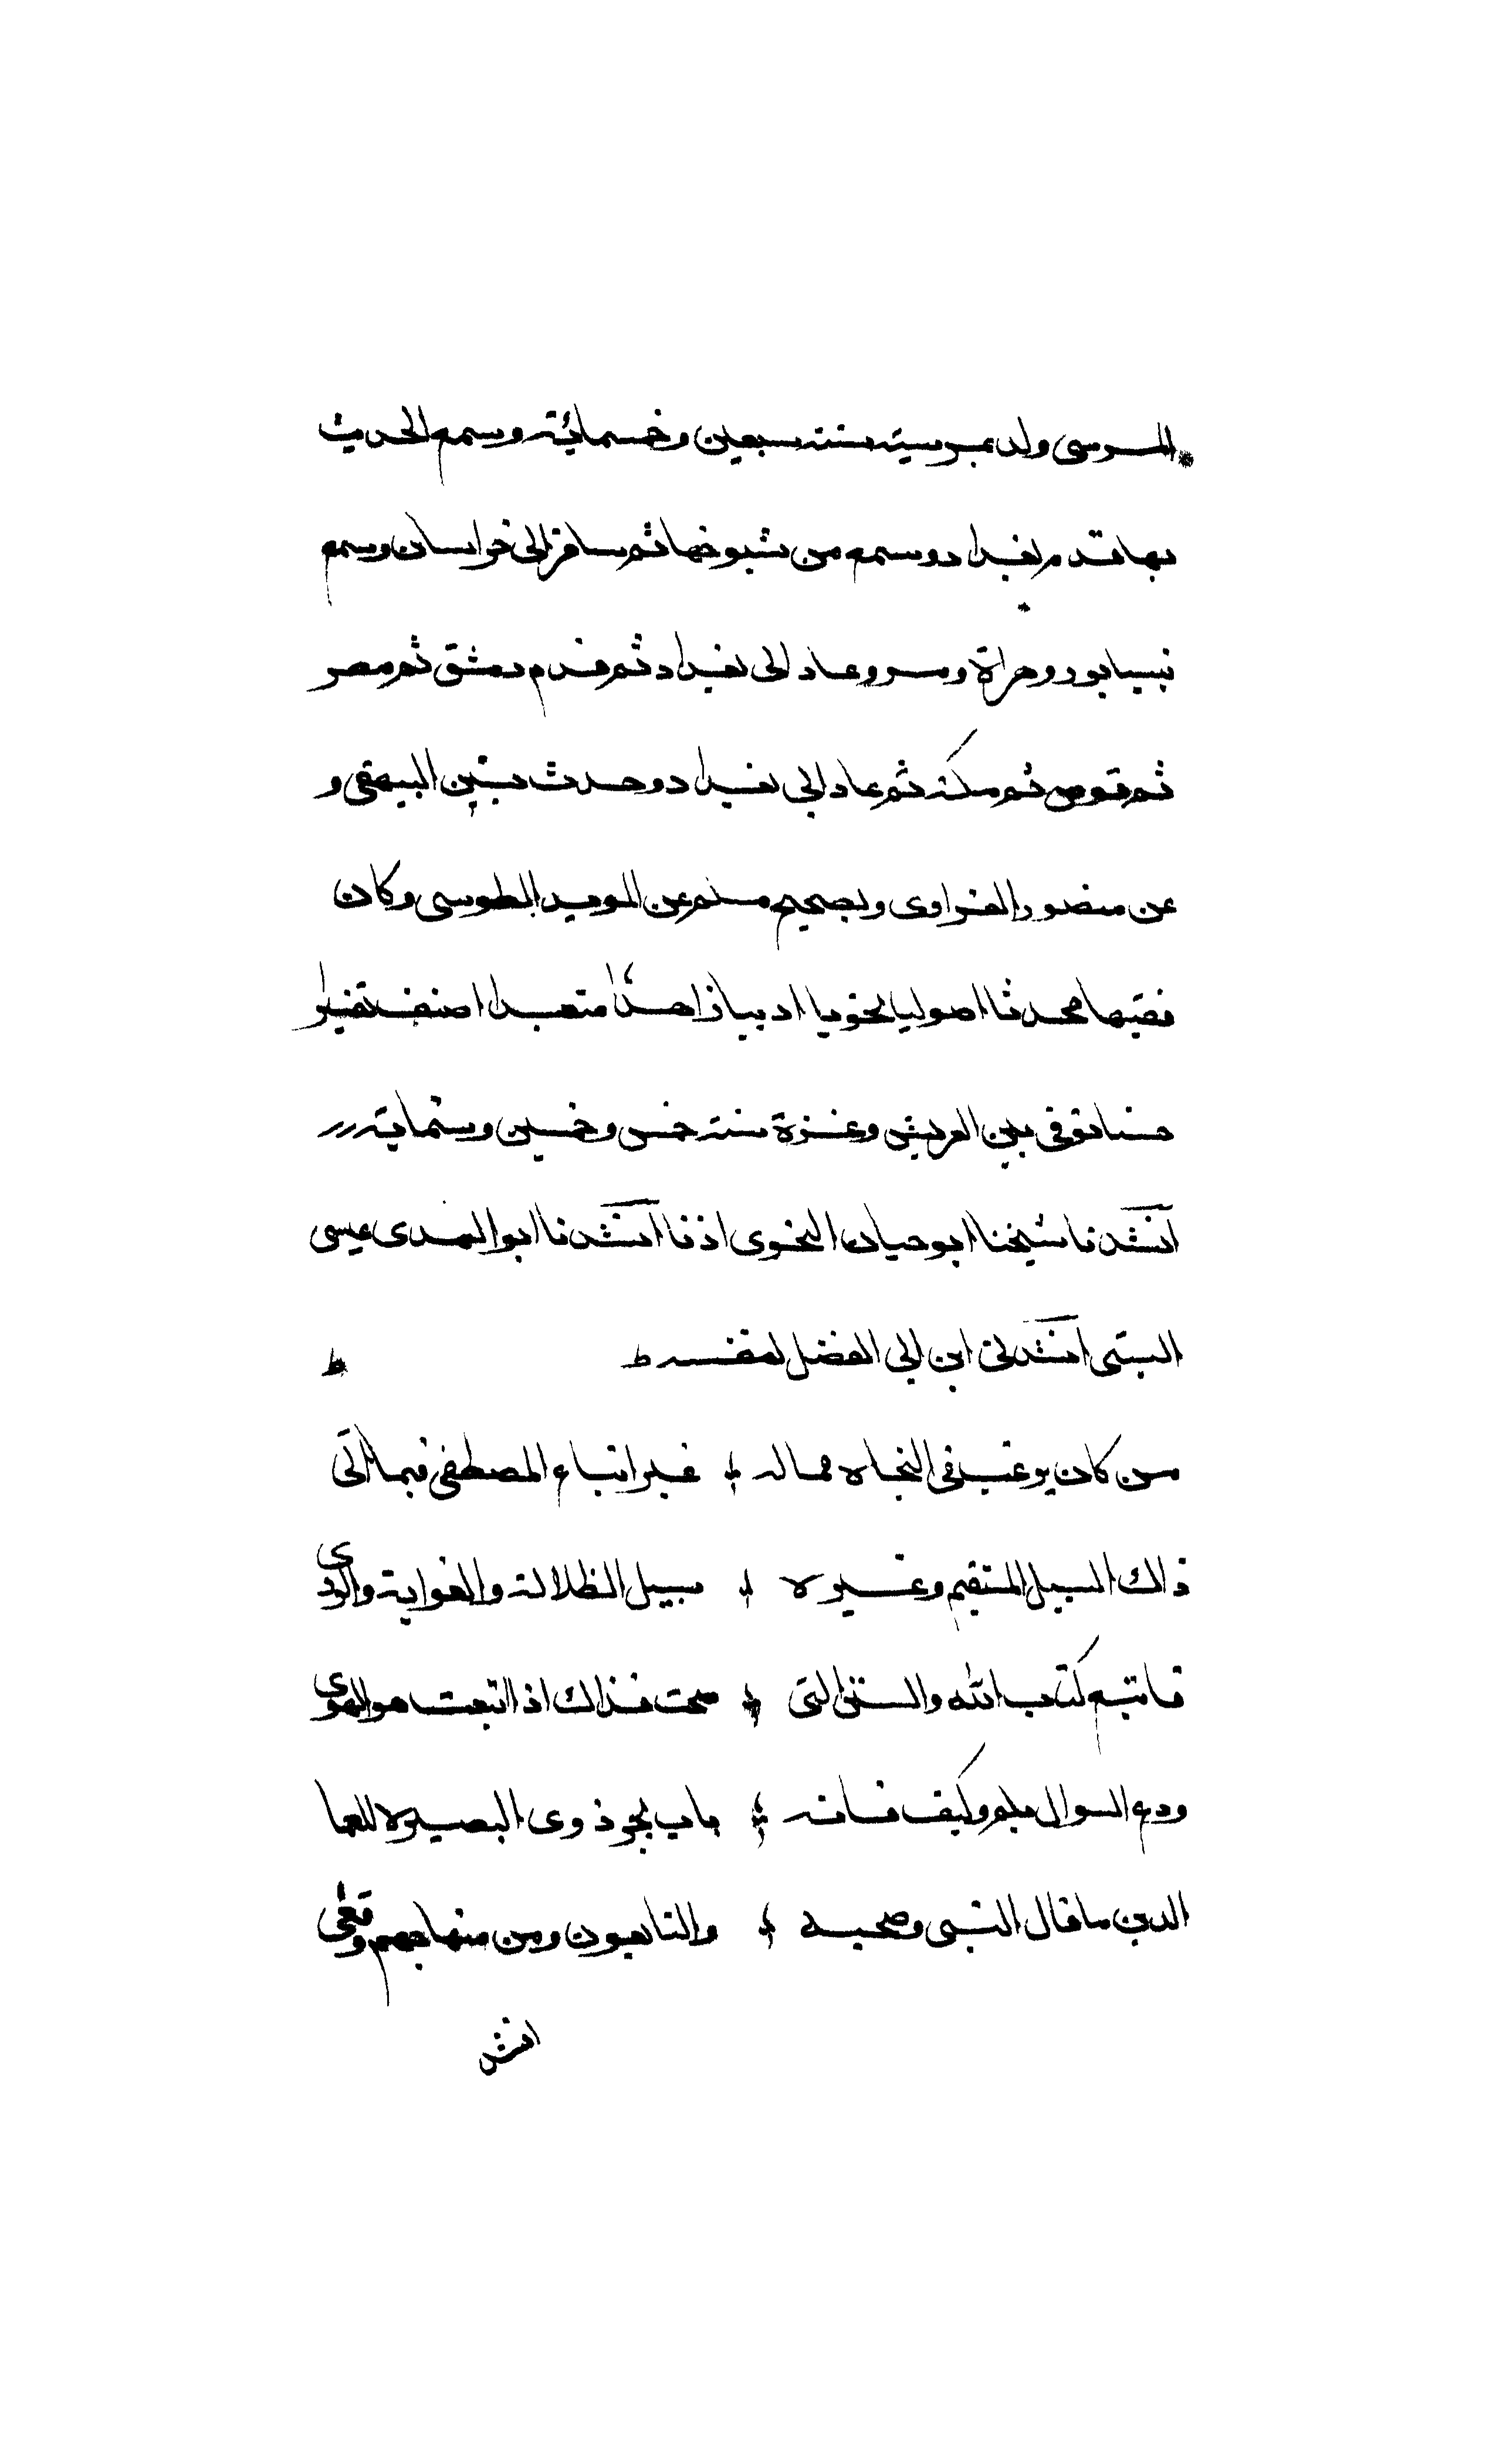 المرسى ولد بمرسيه سنته سبعين وخمسمائة وسمع الحديث
بها قدم بغداد وسمع من شيوخها ثم سافر الى خراسان وسمع
نيسابور وهراة ومرو وعاد الى بغداد ثم قدم دمشق ثم مصر
ثم قوص ثم مكة ثم عاد الى بغداد وحدث بسنن البيهقى و
عن منصور الفراوى وبصحيح مسلم عن المويد الطوسى وكان
فقيها محدثا اصوليا نحويا اديبا زاهدا متعبدا صنف تفسيرا
حسنا توفى بين العريش وغزة سنة خمس وخمسين وستماية
انشدنا شيخنا ابو حيان النحوى اذنا انشدنا ابو الهدى عيسى
السبتى انشدنى ابن ابى الفضل لنفسه
من كان يرغب فى النجاه فماله غير اتباع المصطفى فيما اتى
ذاك السبيل المستقيم وغيره سبيل الظلالة والغواية والردى
فاتبع كتاب الله والسنن التى صحت فذاك اذا اتبعت هو الهوى
ودع السوال بلم وكيف فانه باب يجر ذوى البصيرة للعما
الدين ما قال النبى وصحبه والتابعون ومن مناهجهم قفى
انش